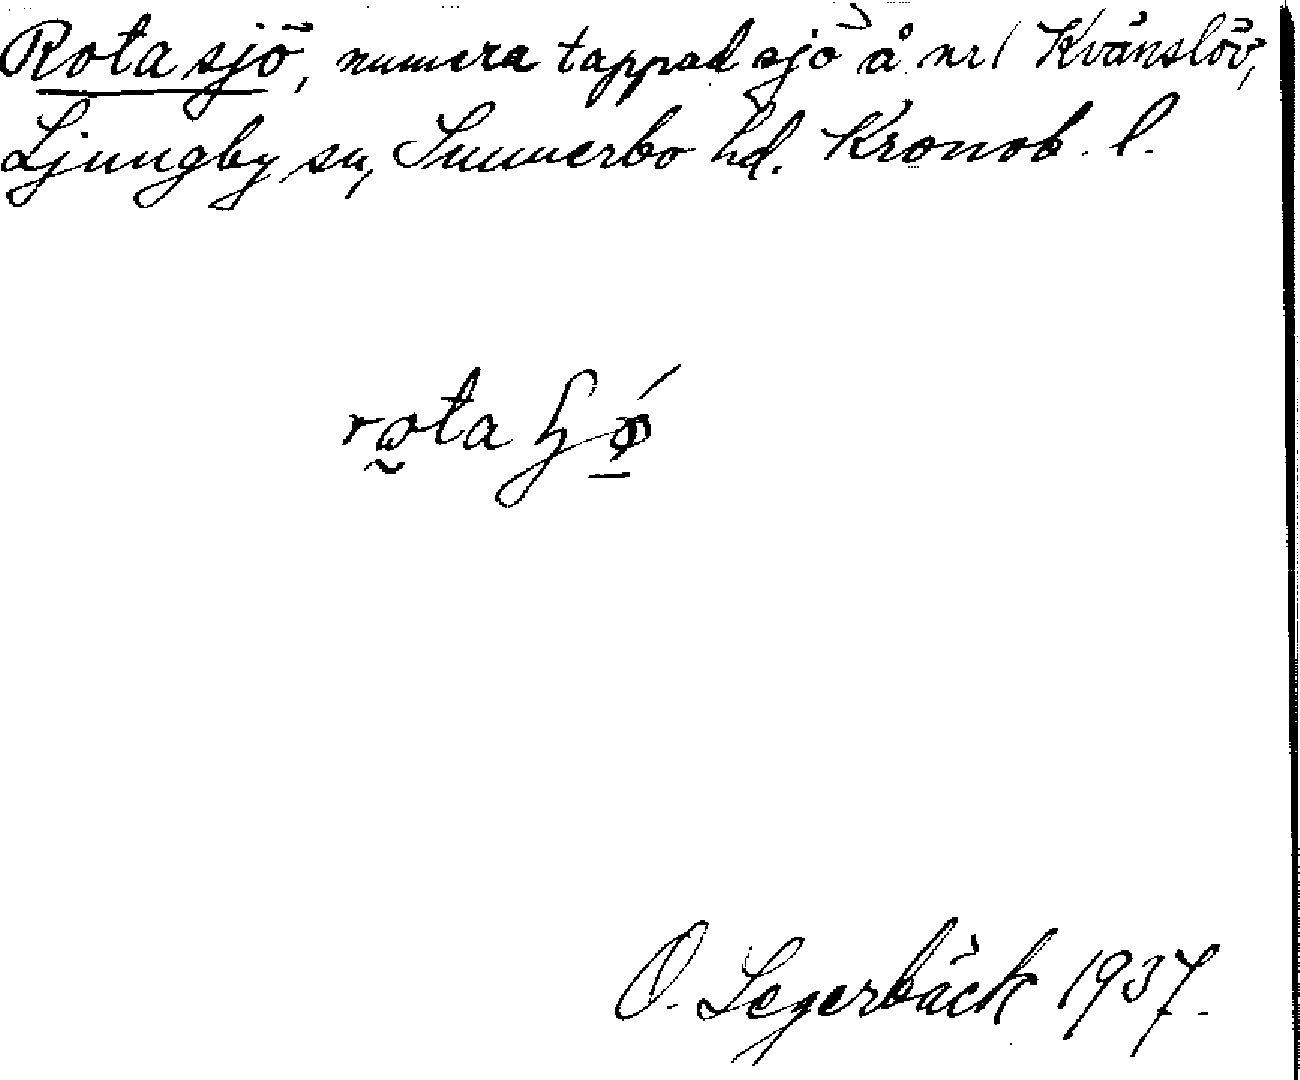 Rota sjö, numera tappad sjö å nr 1 Kvänslöv,
Ljungby sn, Sunnerbo hd. Kronob. l.
rota
O. Segerbäck 1937.